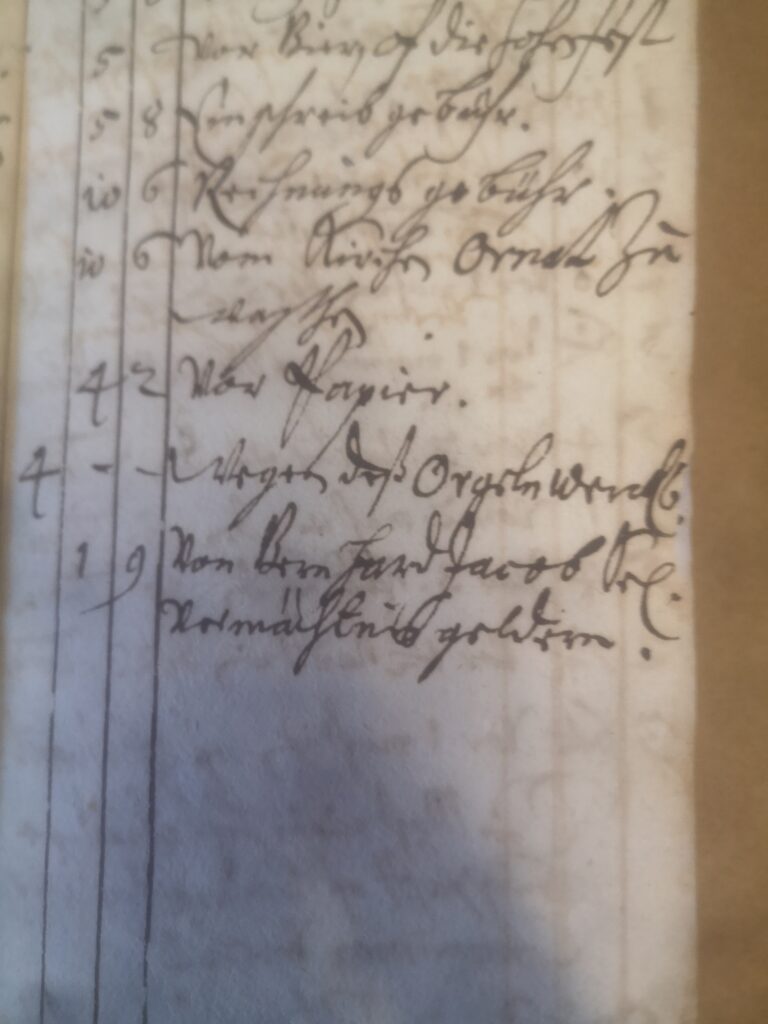 5 vor Bier, uf die hohe fest
5 8 Einschreib gebühr.
10 6 Rechnungs gebühr.
10 6 Vom Kirchen Ornat zu
waschen.
4 2 Vor Papier.
4 - - Wegen deß Orgelnwercks.
1 9 Von Bernhard Jacob Sel.
Vermächtnis geldern.